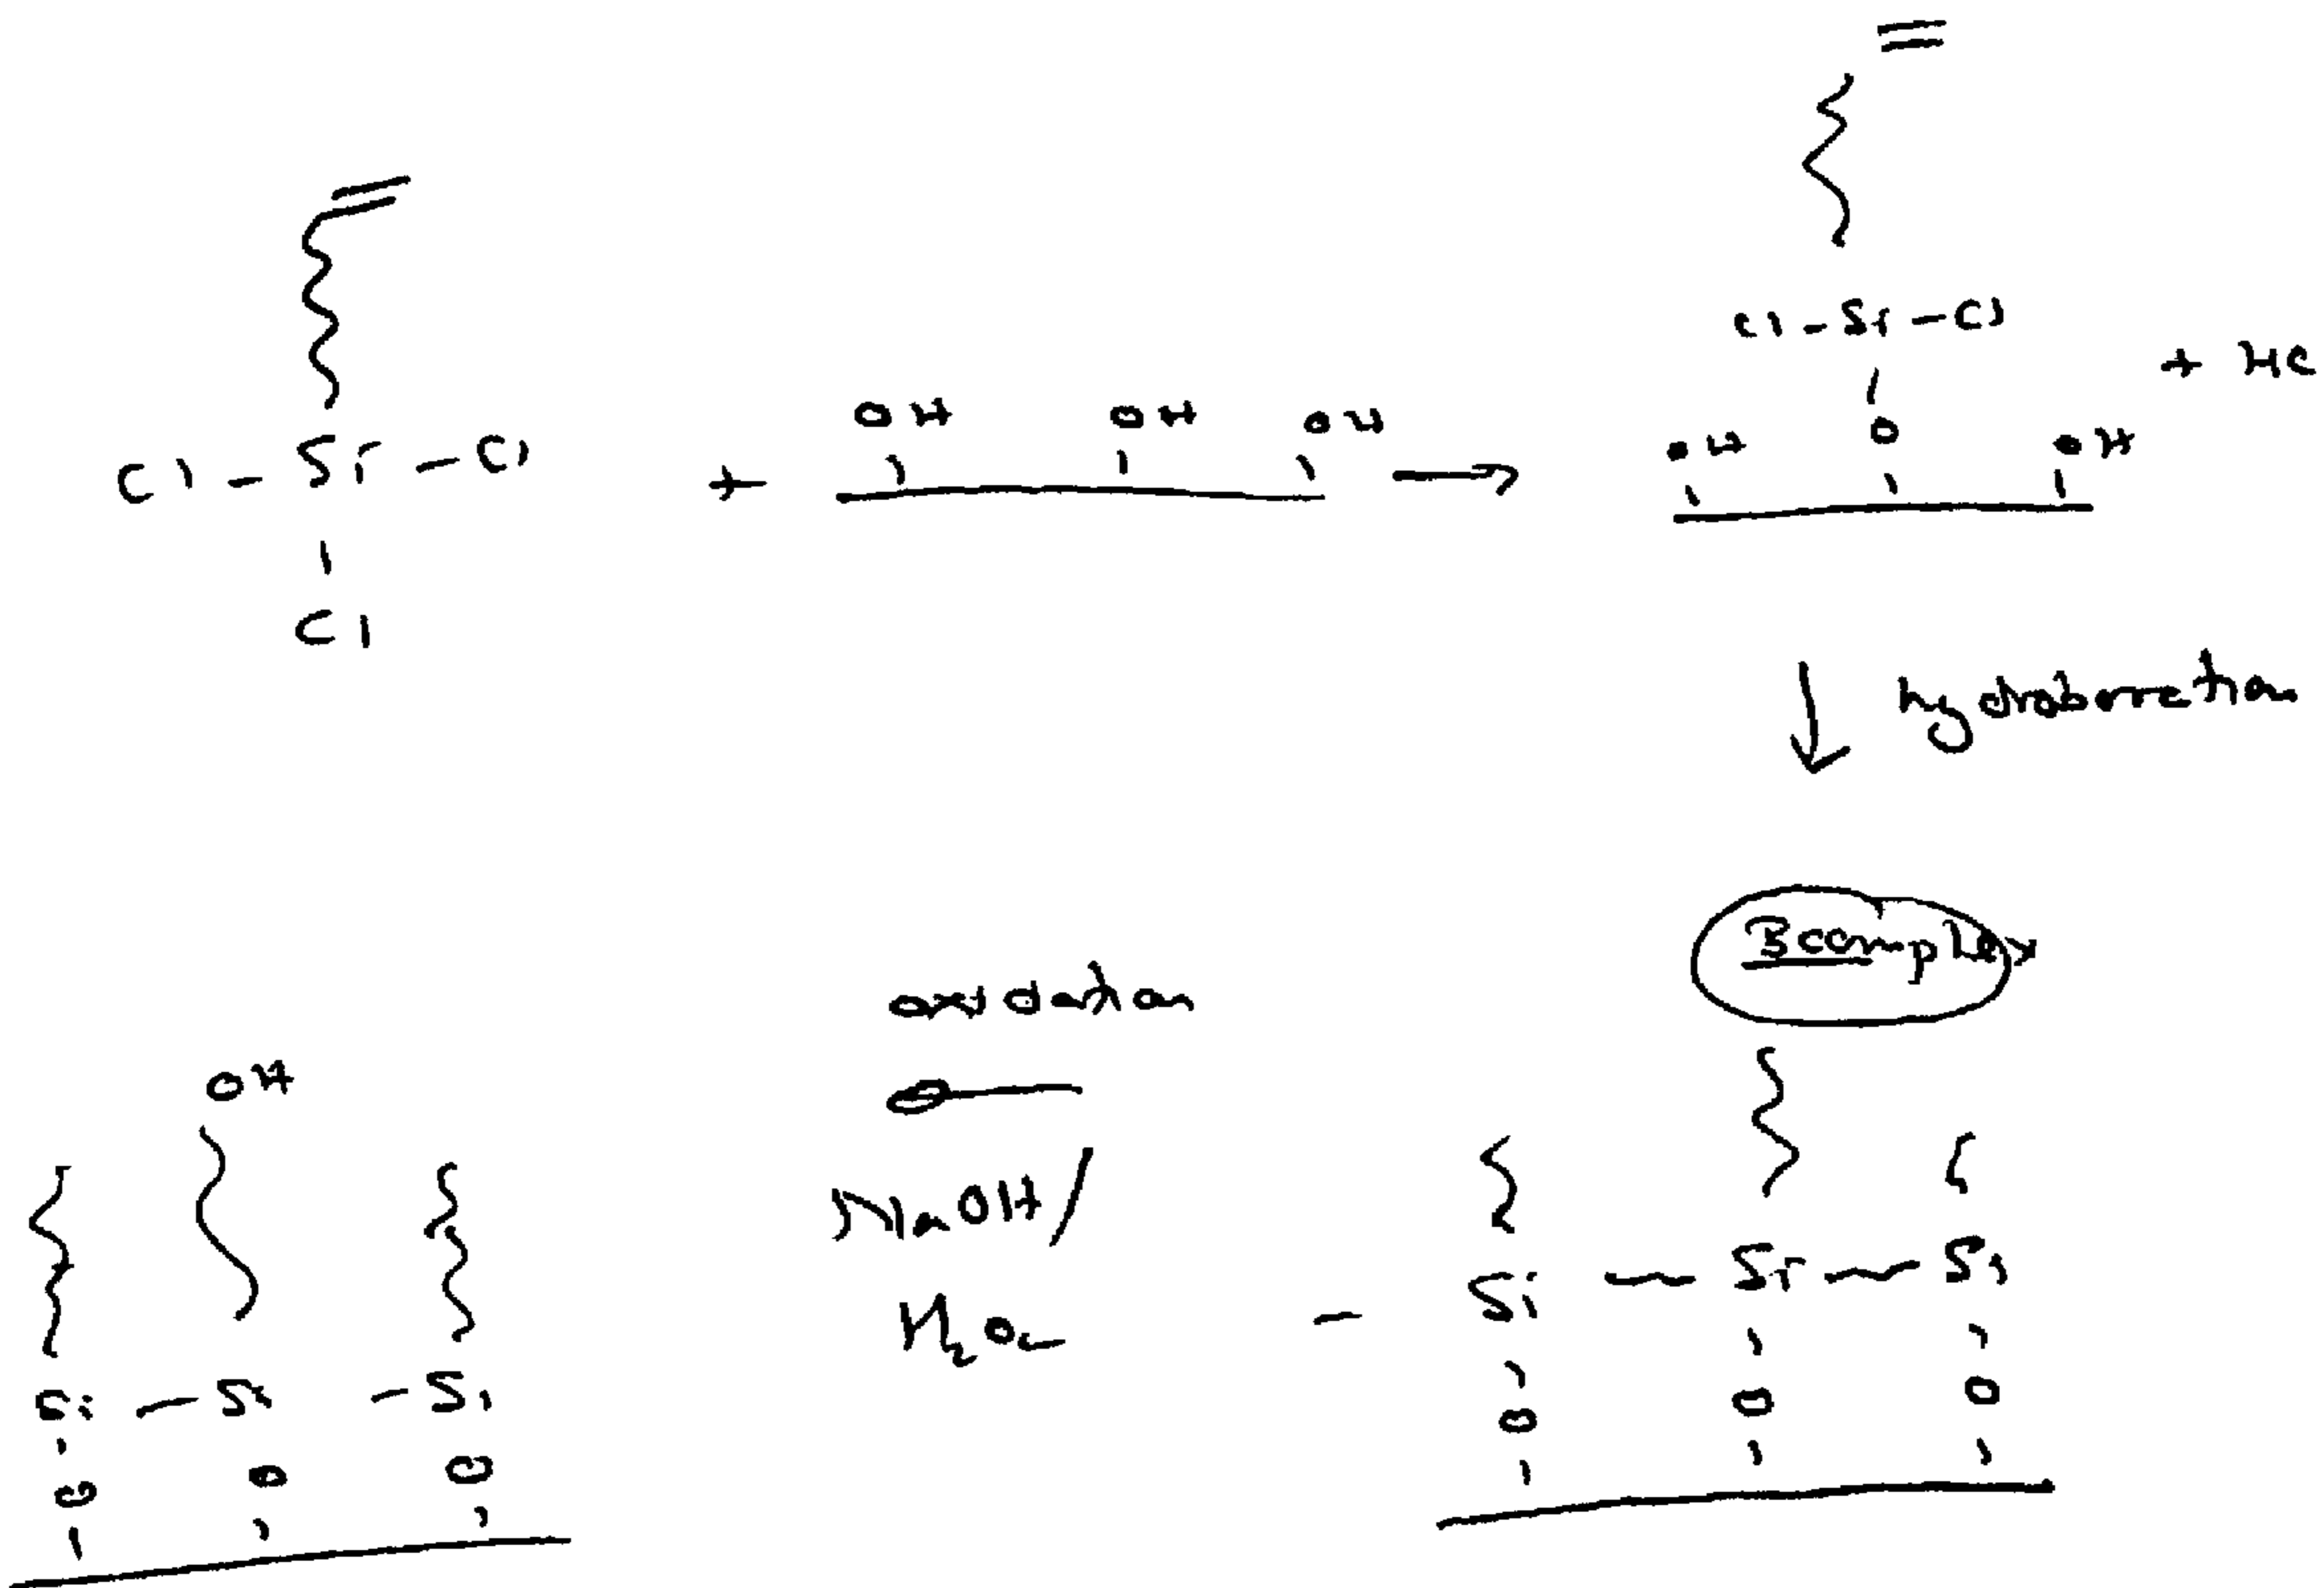 Cl - Si - Cl
Cl
+
OH OH OH
Cl - Si - Cl
O
OH OH
+ HC
hydroborretion
B complex
Si - Si - Si
O O O
oxidation
NaOH/
OH
Si - Si - Si
O O O